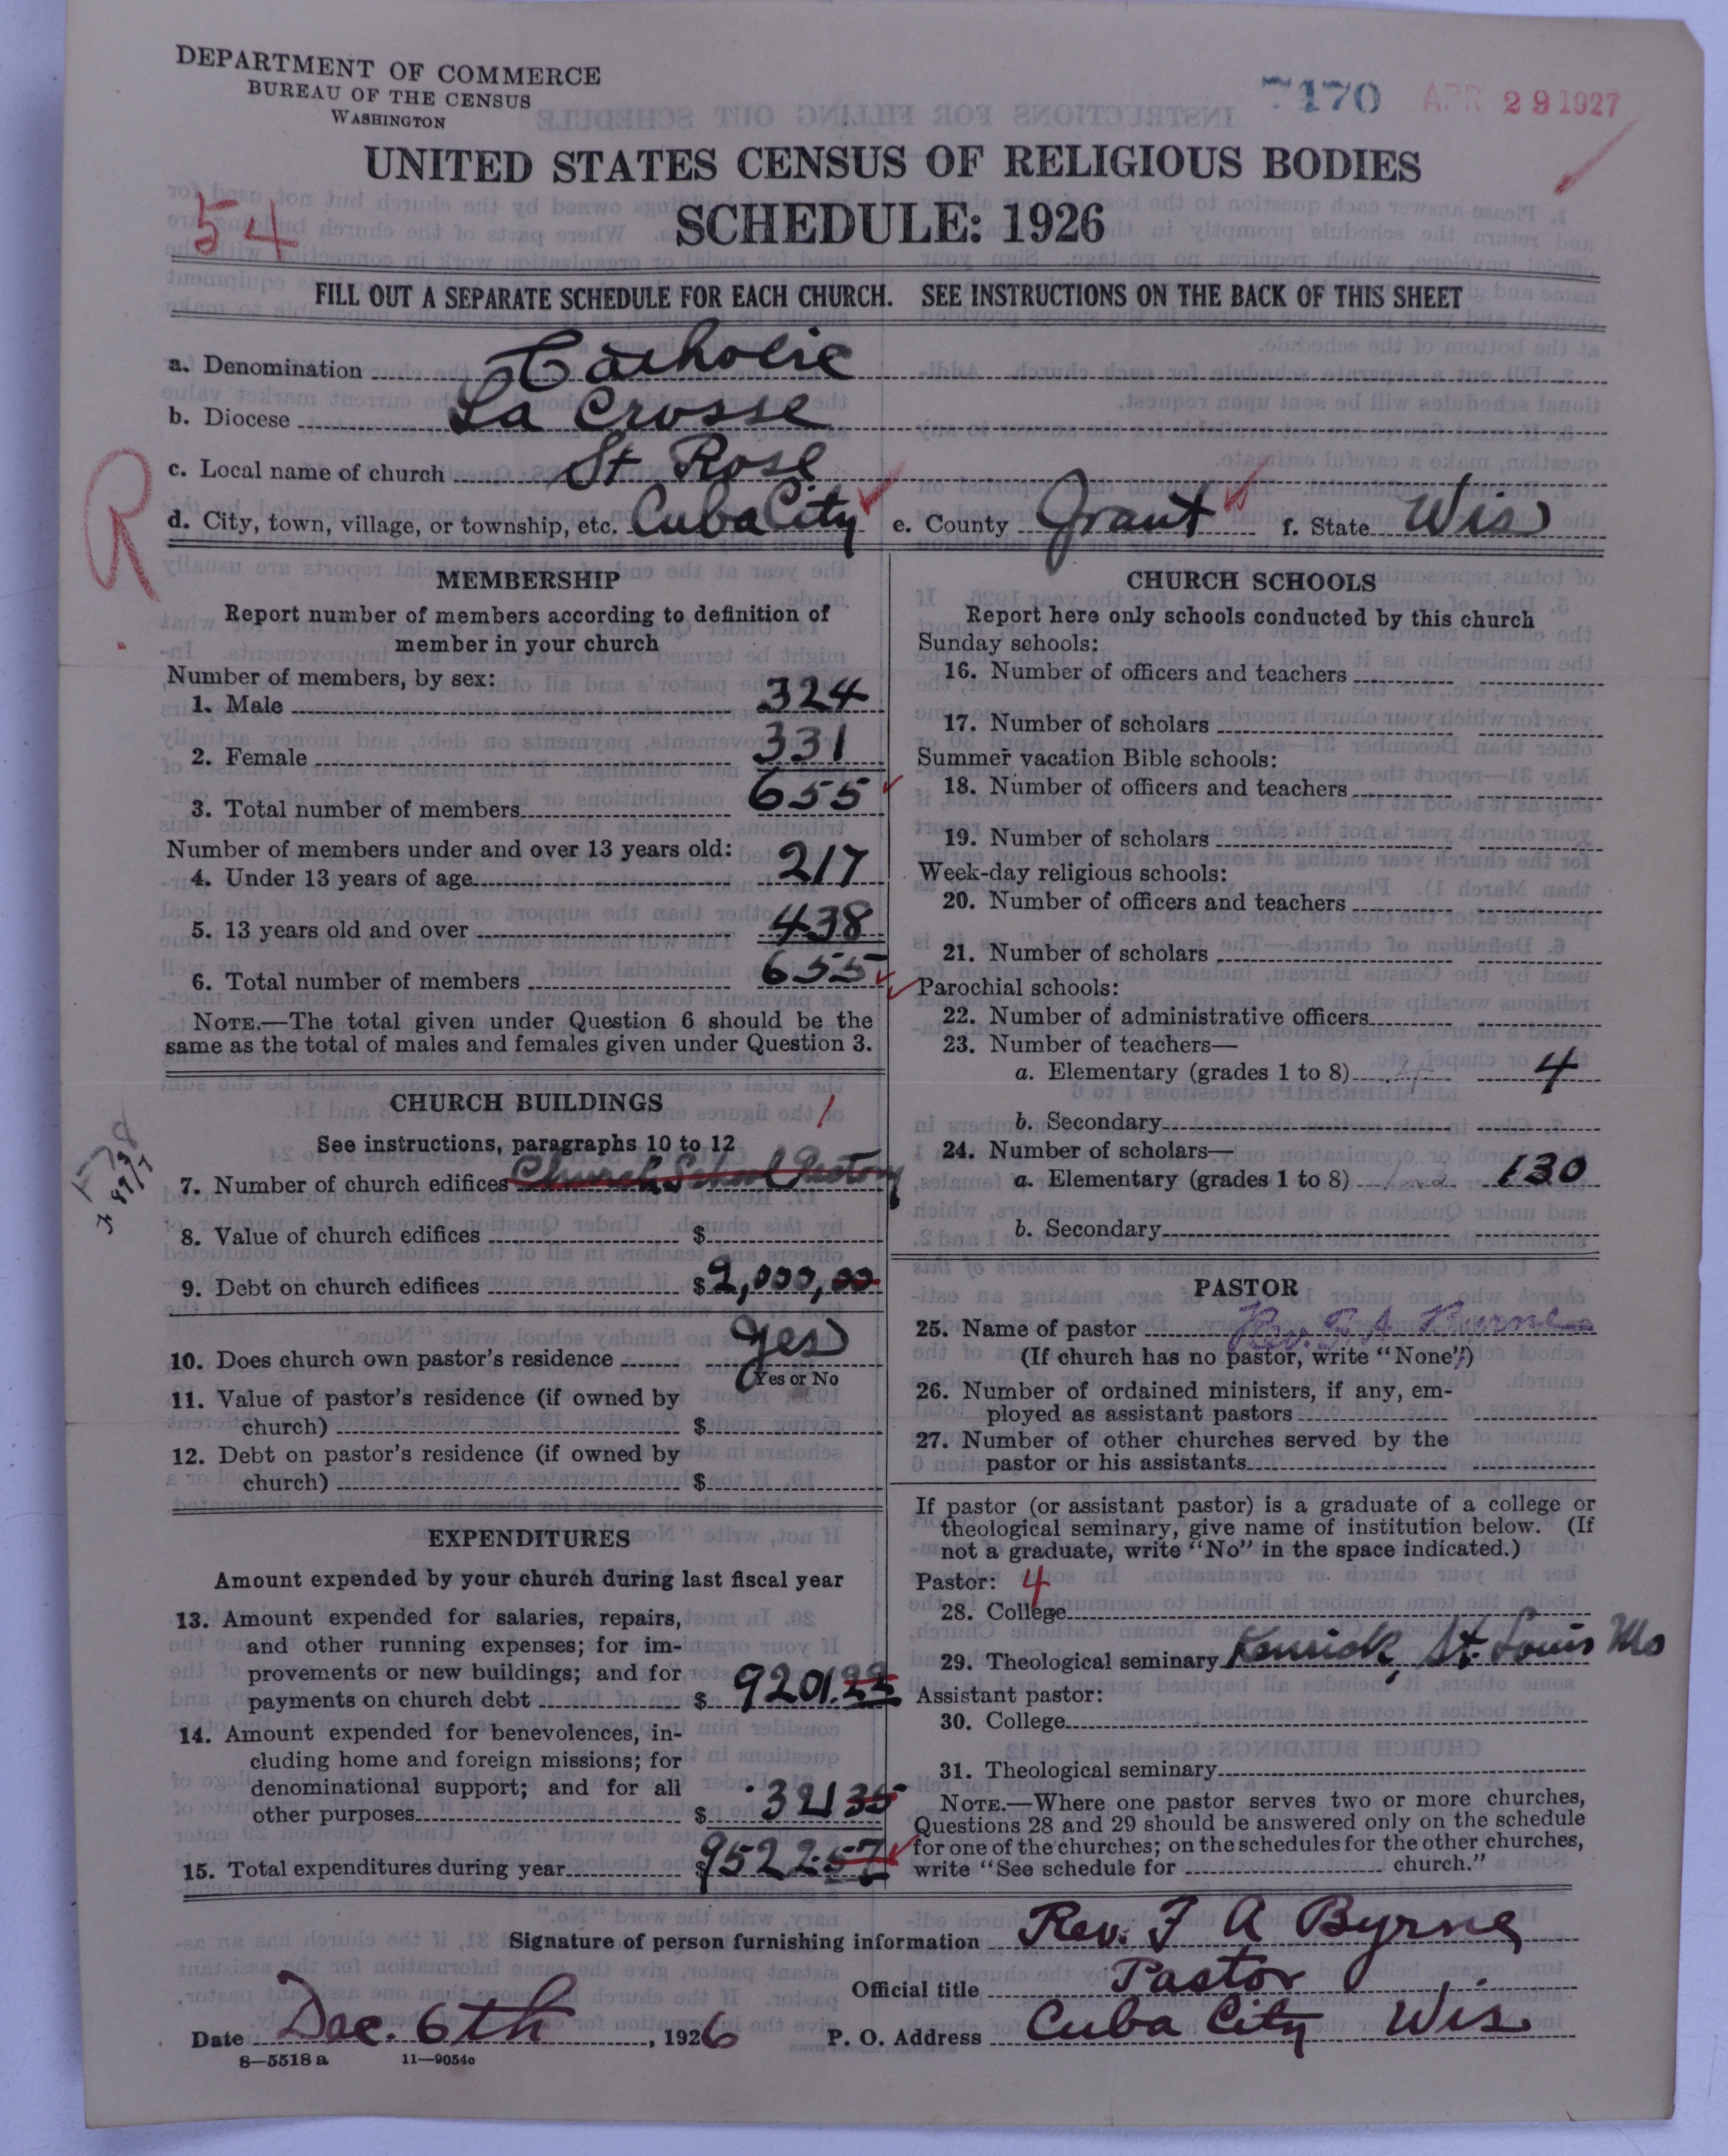 DEPARTMENT OF COMMERCE
BUREAU OF THE CENSUS
WASHINGTON
7170 APR 29 1927
UNITED STATES CENSUS OF RELIGIOUS BODIES
54
SCHEDULE: 1926
FILL OUT A SEPARATE SCHEDULE FOR EACH CHURCH. SEE INSTRUCTIONS ON THE BACK OF THIS SHEET
a. Denomination Catholic
b. Diocese La Crosse
c. Local name of church St Rose
R
d. City, town, village, or township, etc. Cuba City e. County Grant f. State Wis
MEMBERSHIP
Report number of members according to definition of
member in your church
Number of members, by sex:
1. Male 324
2. Female 331
3. Total number of members 655
Number of members under and over 13 years old:
4. Under 13 years of age 217
5. 13 years old and over 438
6. Total number of members 655
NOTE.—The total given under Question 6 should be the
same as the total of males and females given under Question 3.
CHURCH BUILDINGS
See instructions, paragraphs 10 to 12
1
7. Number of church edifices Church School Rectory
8. Value of church edifices $
9. Debt on church edifices $2,000,00
10. Does church own pastor's residence Yes
Yes or No
11. Value of pastor's residence (if owned by
church) $
12. Debt on pastor's residence (if owned by
church) $
EXPENDITURES
Amount expended by your church during last fiscal year
13. Amount expended for salaries, repairs,
and other running expenses; for im-
provements or new buildings; and for
payments on church debt $ 9201.22
14. Amount expended for benevolences, in-
cluding home and foreign missions; for
denominational support; and for all
other purposes $ 321 35
15. Total expenditures during year $9522.57
CHURCH SCHOOLS
Report here only schools conducted by this church
Sunday schools:
16. Number of officers and teachers
17. Number of scholars
Summer vacation Bible schools:
18. Number of officers and teachers
19. Number of scholars
Week-day religious schools:
20. Number of officers and teachers
21. Number of scholars
Parochial schools:
22. Number of administrative officers
23. Number of teachers—
a. Elementary (grades 1 to 8) 4
b. Secondary
24. Number of scholars—
a. Elementary (grades 1 to 8) 130
b. Secondary
PASTOR
25. Name of pastor Rev. F A Byrne
(If church has no pastor, write "None")
26. Number of ordained ministers, if any, em-
ployed as assistant pastors
27. Number of other churches served by the
pastor or his assistants
If pastor (or assistant pastor) is a graduate of a college or
theological seminary, give name of institution below. (If
not a graduate, write "No" in the space indicated.)
Pastor: 4
28. College
29. Theological seminary Kenrick, St. Louis Mo
Assistant pastor:
30. College
31. Theological seminary
NOTE.—Where one pastor serves two or more churches,
Questions 28 and 29 should be answered only on the schedule
for one of the churches; on the schedules for the other churches,
write "See schedule for church."
Signature of person furnishing information Rev. F A Byrne
Official title Pastor
Date Dec. 6th, 1926 P. O. Address Cuba City Wis
8—5518 a 11—9054c